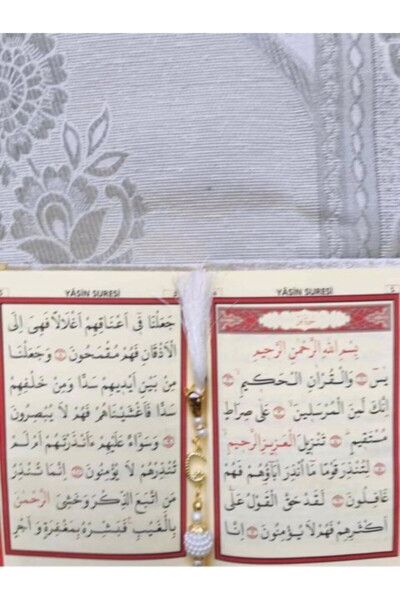 YÂSİN SURESİ
5
بِسْمِ اللهِ الرَّحْمٰنِ الرَّحِيمِ
يٰسٓ وَالْقُرْاٰنِ الْحَكِيمِ
اِنَّكَ لَمِنَ الْمُرْسَلِينَ عَلٰى صِرَاطٍ
مُسْتَقِيمٍ تَنْزِيلَ الْعَزِيزِ الرَّحِيمِ
لِتُنْذِرَ قَوْمًا مَٓا اُنْذِرَ اٰبَٓاؤُهُمْ فَهُمْ
غَافِلُونَ لَقَدْ حَقَّ الْقَوْلُ عَلٰٓى
اَكْثَرِهِمْ فَهُمْ لَا يُؤْمِنُونَ اِنَّا
YÂSİN SURESİ
جَعَلْنَا فِٓى اَعْنَاقِهِمْ اَغْلَالًا فَهِىَ اِلَى
الْاَذْقَانِ فَهُمْ مُقْمَحُونَ وَجَعَلْنَا
مِنْ بَيْنِ اَيْدِيهِمْ سَدًّا وَمِنْ خَلْفِهِمْ
سَدًّا فَاَغْشَيْنَاهُمْ فَهُمْ لَا يُبْصِرُونَ
وَسَوَٓاءٌ عَلَيْهِمْ ءَاَنْذَرْتَهُمْ اَمْ لَمْ
تُنْذِرْهُمْ لَا يُؤْمِنُونَ اِنَّمَا تُنْذِرُ
مَنِ اتَّبَعَ الذِّكْرَ وَخَشِىَ الرَّحْمٰنَ
بِالْغَيْبِ فَبَشِّرْهُ بِمَغْفِرَةٍ وَ اَجْرٍ